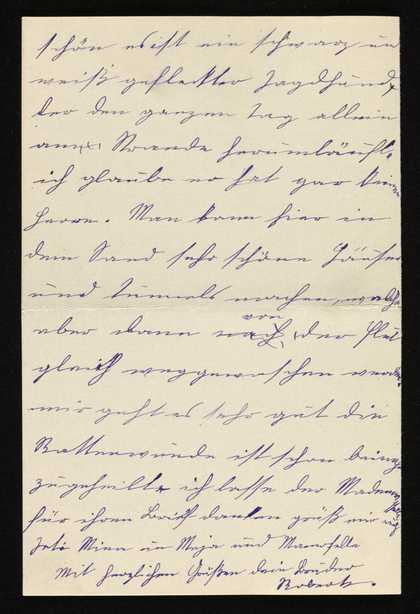 schön es ist ein schwarz und
weiß gefleckter Jagdhund,
der den ganzen Tag allein
am Strande herumläuft,
ich glaube er hat gar keinen
Herrn. Man kann hier in
dem Sand sehr schöne Häuser
und Tunnels machen, welche
aber dann von der Flut
gleich weggewaschen werden.
mir geht es sehr gut die
Rattenwunde ist schon beinahe
zugeheilt, ich lasse der
für ihren Brief danken grüß mir
Mienn u Meja und
Mit herzlichen Grüßen dein Bruder
Robert.